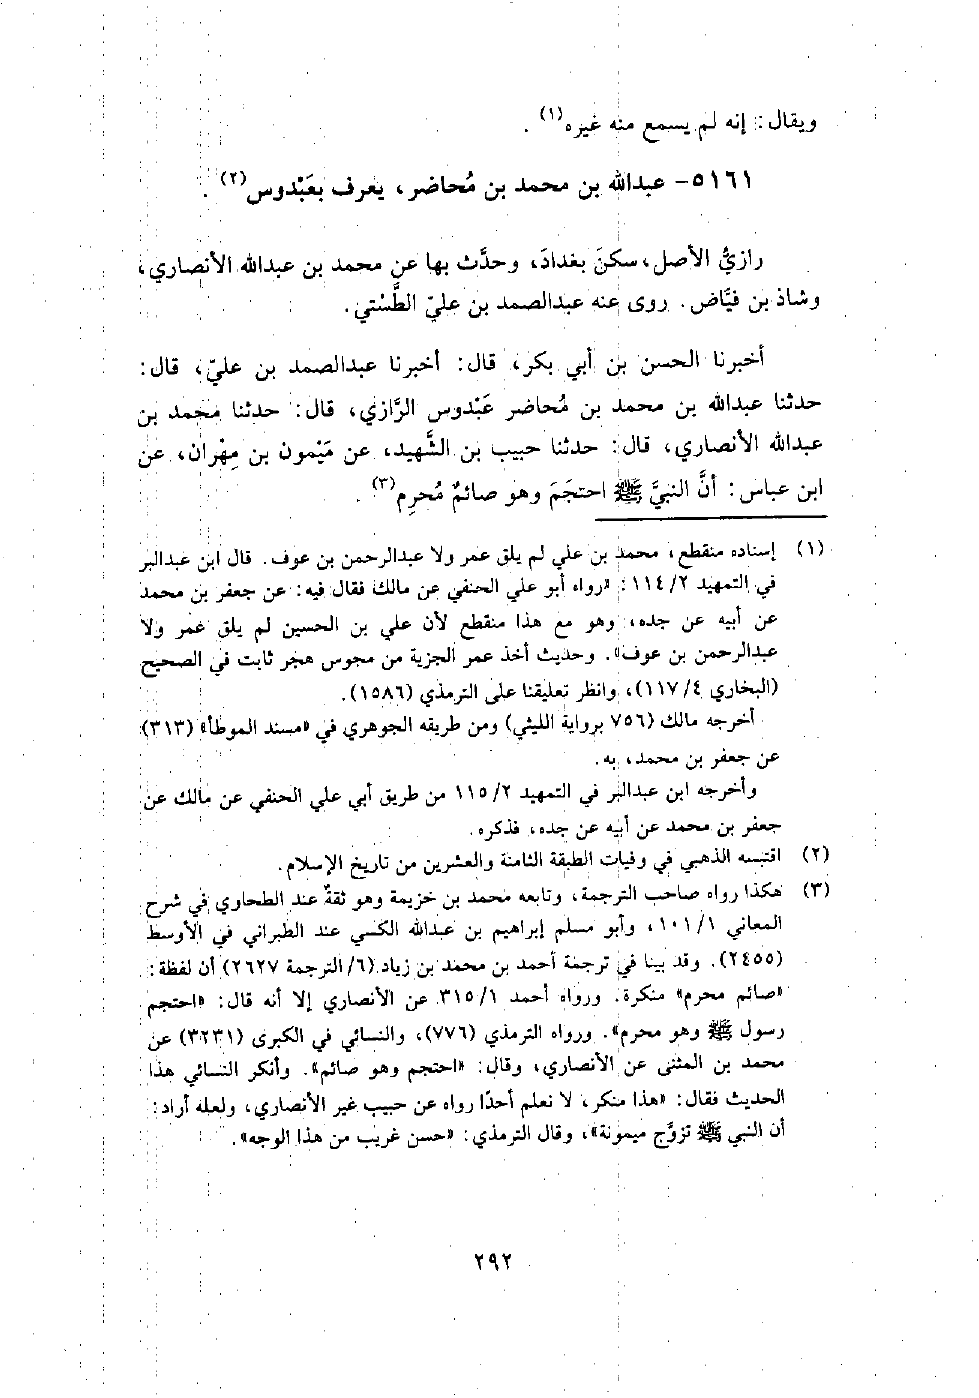 ويقال: إنه لم يسمع منه غيره(١) .
٥١٦١- عبدالله بن محمد بن مُحاضر، يعرف بعَبْدوس(٢) .
رازيُّ الأصل، سكنَ بغدادَ، وحدَّث بها عن محمد بن عبدالله الأنصاري،
وشاذ بن فيَّاض. روى عنه عبدالصمد بن عليّ الطَّسْتي.
أخبرنا الحسن بن أبي بكر، قال: أخبرنا عبدالصمد بن عليّ، قال:
حدثنا عبدالله بن محمد بن مُحاضر عَبْدوس الرَّازي، قال: حدثنا محمد بن
عبدالله الأنصاري، قال: حدثنا حبيب بن الشَّهيد، عن مَيْمون بن مِهْران، عن
ابن عباس: أنَّ النبيَّ ﷺ احتجَمَ وهو صائمٌ مُحرِم(٣) .
(١) إسناده منقطع، محمد بن علي لم يلق عمر ولا عبدالرحمن بن عوف. قال ابن عبدالبر
في التمهيد ٢/ ١١٤: «رواه أبو علي الحنفي عن مالك فقال فيه: عن جعفر بن محمد
عن أبيه عن جده، وهو مع هذا منقطع لأن علي بن الحسين لم يلق عمر ولا
عبدالرحمن بن عوف». وحديث أخذ عمر الجزية من مجوس هجر ثابت في الصحيح
(البخاري ٤/ ١١٧)، وانظر تعليقنا على الترمذي (١٥٨٦).
أخرجه مالك (٧٥٦ برواية الليثي) ومن طريقه الجوهري في «مسند الموطأ» (٣١٣)
عن جعفر بن محمد، به.
وأخرجه ابن عبدالبر في التمهيد ٢/ ١١٥ من طريق أبي علي الحنفي عن مالك عن
جعفر بن محمد عن أبيه عن جده، فذكره.
(٢) اقتبسه الذهبي في وفيات الطبقة الثامنة والعشرين من تاريخ الإسلام.
(٣) هكذا رواه صاحب الترجمة، وتابعه محمد بن خزيمة وهو ثقةٌ عند الطحاوي في شرح
المعاني ١/ ١٠١، وأبو مسلم إبراهيم بن عبدالله الكسي عند الطبراني في الأوسط
(٢٤٥٥). وقد بينا في ترجمة أحمد بن محمد بن زياد (٦/ الترجمة ٢٦٢٧) أن لفظة:
«صائم محرم» منكرة. ورواه أحمد ١/ ٣١٥ عن الأنصاري إلا أنه قال: «احتجم
رسول ﷺ وهو محرم». ورواه الترمذي (٧٧٦)، والنسائي في الكبرى (٣٢٣١) عن
محمد بن المثنى عن الأنصاري، وقال: «احتجم وهو صائم». وأنكر النسائي هذا
الحديث فقال: «هذا منكر، لا نعلم أحدًا رواه عن حبيب غير الأنصاري، ولعله أراد:
أن النبي ﷺ تزوَّج ميمونة»، وقال الترمذي: «حسن غريب من هذا الوجه».
٢٩٢